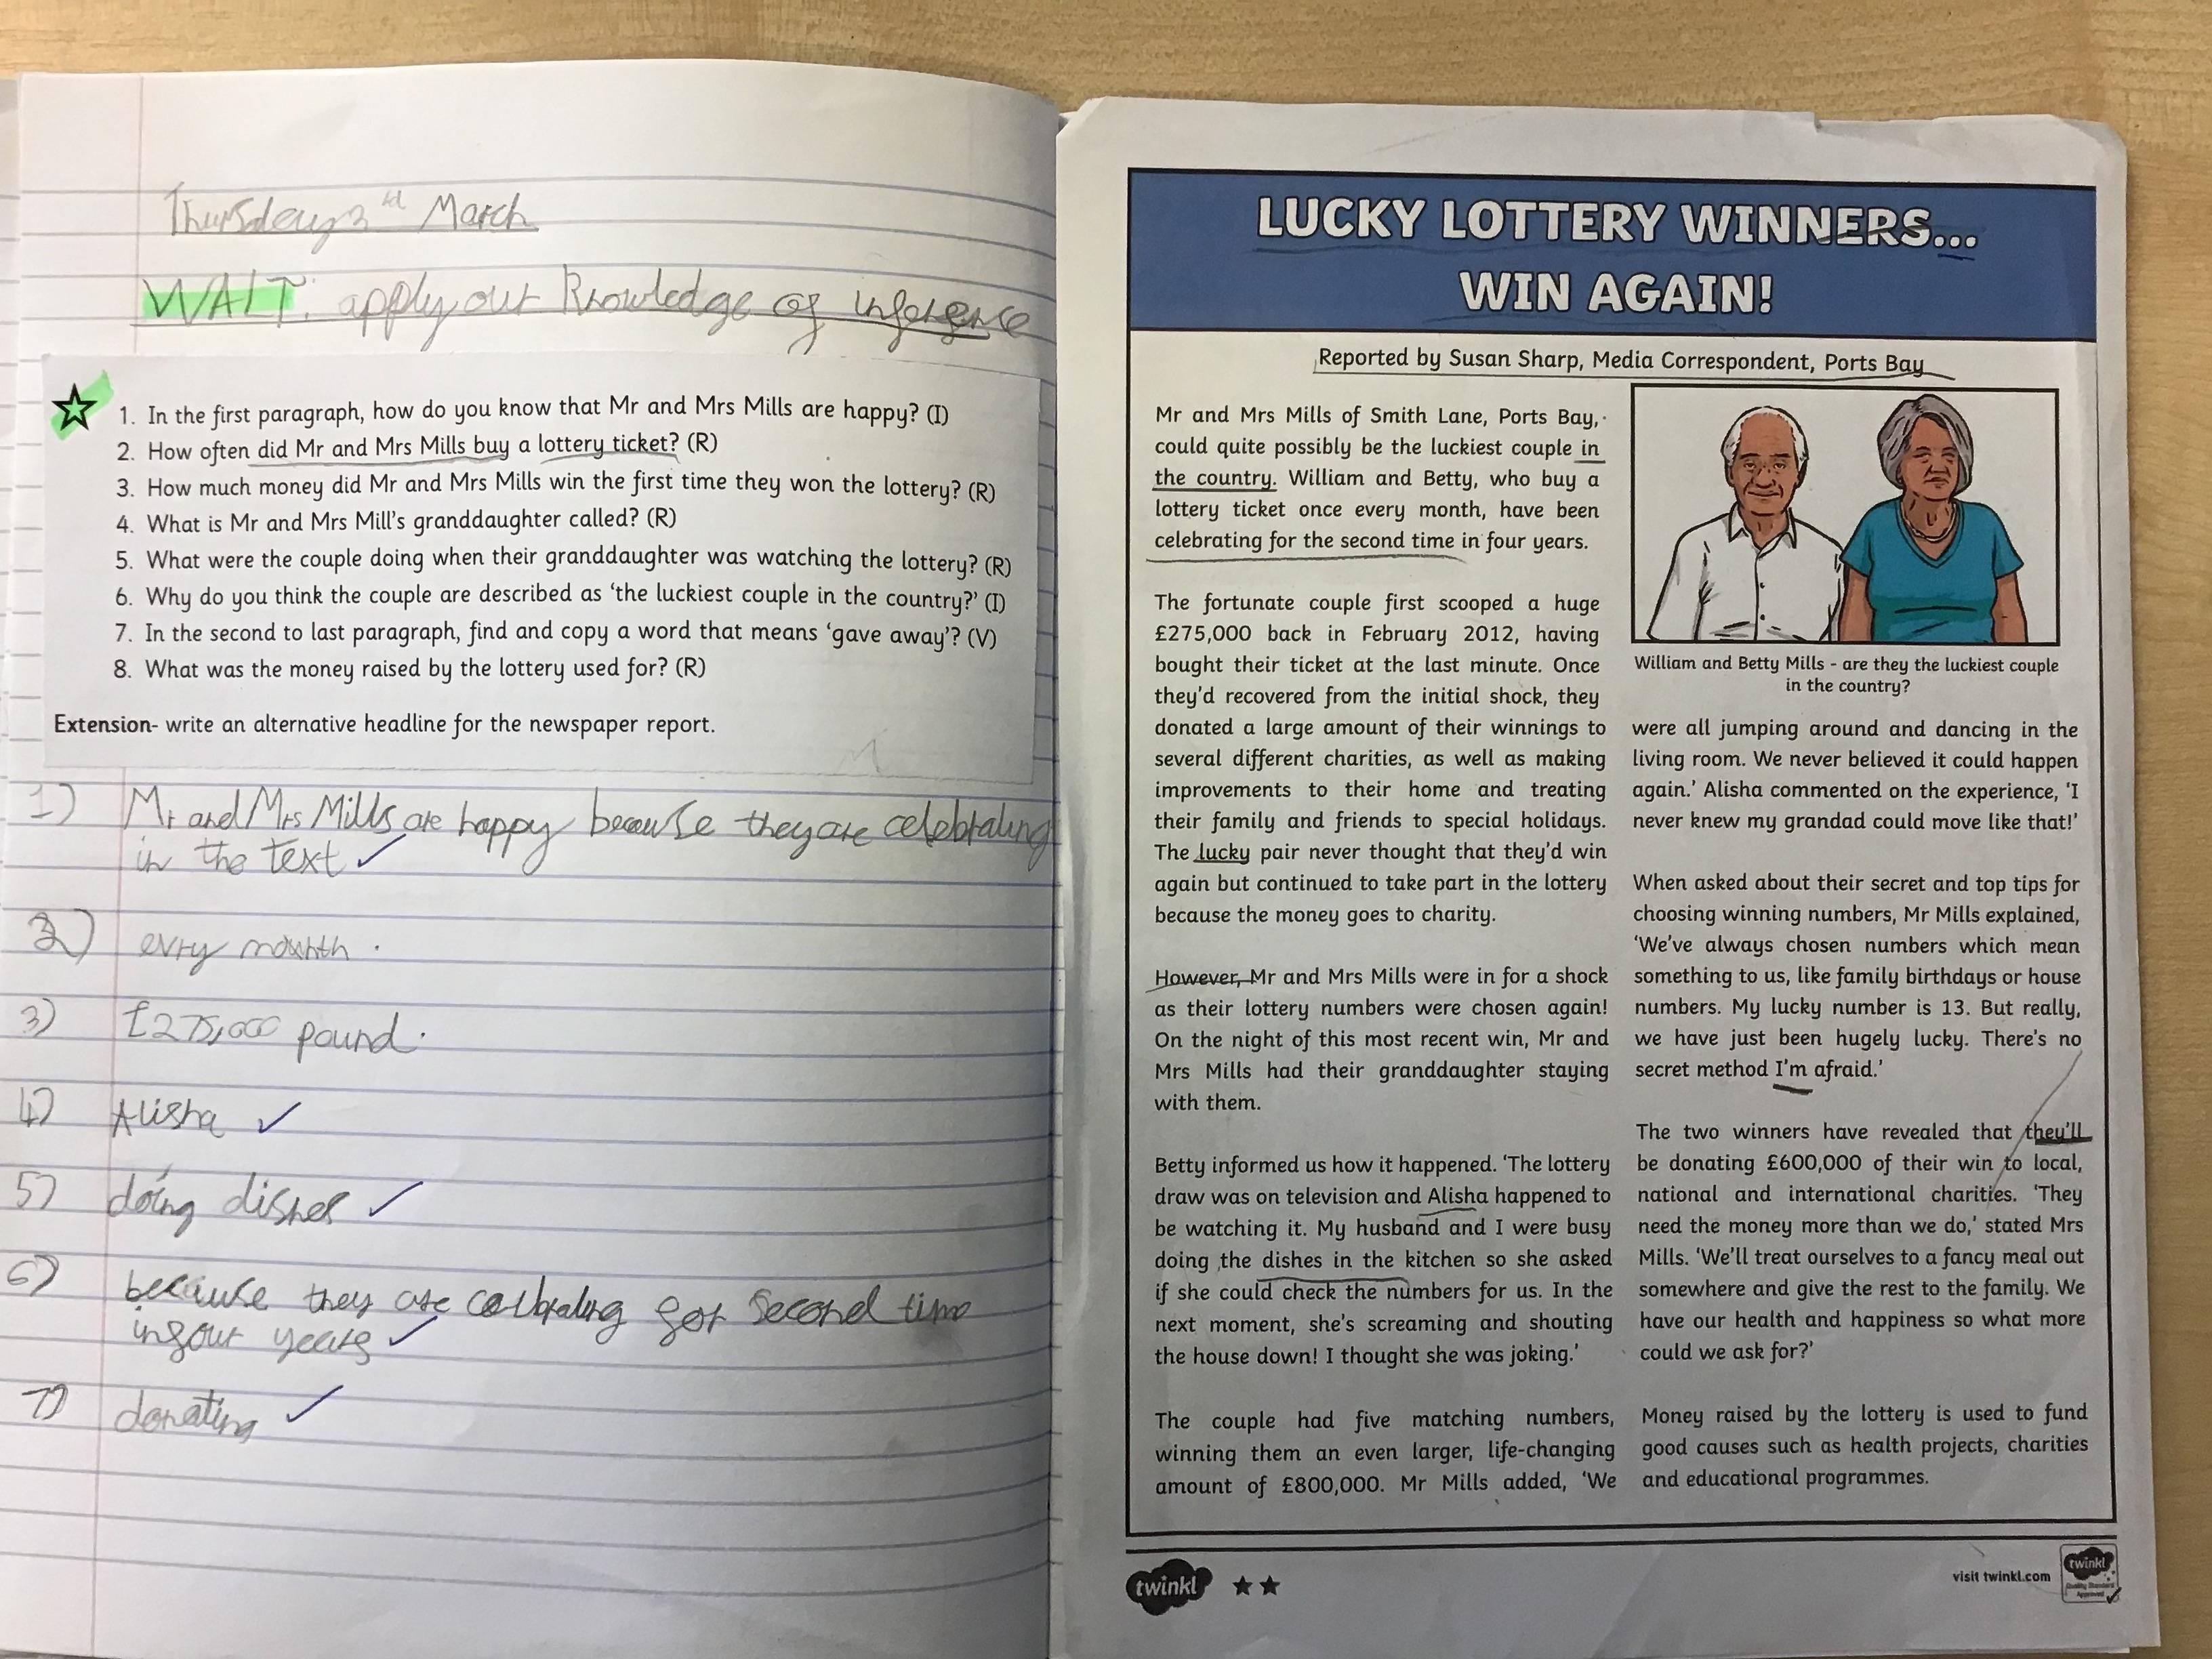 Thursday 2rd March
WALT: apply our knowledge of inference
1. In the first paragraph, how do you know that Mr and Mrs Mills are happy? (I)
2. How often did Mr and Mrs Mills buy a lottery ticket? (R)
3. How much money did Mr and Mrs Mills win the first time they won the lottery? (R)
4. What is Mr and Mrs Mill's granddaughter called? (R)
5. What were the couple doing when their granddaughter was watching the lottery? (R)
6. Why do you think the couple are described as 'the luckiest couple in the country?' (I)
7. In the second to last paragraph, find and copy a word that means 'gave away'? (V)
8. What was the money raised by the lottery used for? (R)
Extension- write an alternative headline for the newspaper report.
1) Mr and Mrs Mills are happy because they are celebrating
in the text ✓
2) evry mounth .
3) £275,000 pound.
4) Alisha ✓
5) doing dishes ✓
6) because they are celbrating for second time
in four years ✓
7) donating ✓
LUCKY LOTTERY WINNERS...
WIN AGAIN!
Reported by Susan Sharp, Media Correspondent, Ports Bay
Mr and Mrs Mills of Smith Lane, Ports Bay,
could quite possibly be the luckiest couple in
the country. William and Betty, who buy a
lottery ticket once every month, have been
celebrating for the second time in four years.
The fortunate couple first scooped a huge
£275,000 back in February 2012, having
bought their ticket at the last minute. Once
they'd recovered from the initial shock, they
donated a large amount of their winnings to
several different charities, as well as making
improvements to their home and treating
their family and friends to special holidays.
The lucky pair never thought that they'd win
again but continued to take part in the lottery
because the money goes to charity.
However, Mr and Mrs Mills were in for a shock
as their lottery numbers were chosen again!
On the night of this most recent win, Mr and
Mrs Mills had their granddaughter staying
with them.
Betty informed us how it happened. 'The lottery
draw was on television and Alisha happened to
be watching it. My husband and I were busy
doing the dishes in the kitchen so she asked
if she could check the numbers for us. In the
next moment, she's screaming and shouting
the house down! I thought she was joking.'
The couple had five matching numbers,
winning them an even larger, life-changing
amount of £800,000. Mr Mills added, 'We
William and Betty Mills - are they the luckiest couple
in the country?
were all jumping around and dancing in the
living room. We never believed it could happen
again.' Alisha commented on the experience, 'I
never knew my grandad could move like that!'
When asked about their secret and top tips for
choosing winning numbers, Mr Mills explained,
'We've always chosen numbers which mean
something to us, like family birthdays or house
numbers. My lucky number is 13. But really,
we have just been hugely lucky. There's no
secret method I'm afraid.'
The two winners have revealed that they'll
be donating £600,000 of their win to local,
national and international charities. 'They
need the money more than we do,' stated Mrs
Mills. 'We'll treat ourselves to a fancy meal out
somewhere and give the rest to the family. We
have our health and happiness so what more
could we ask for?'
Money raised by the lottery is used to fund
good causes such as health projects, charities
and educational programmes.
twinkl
visit twinkl.com
twinkl
Quality Standard
Approved